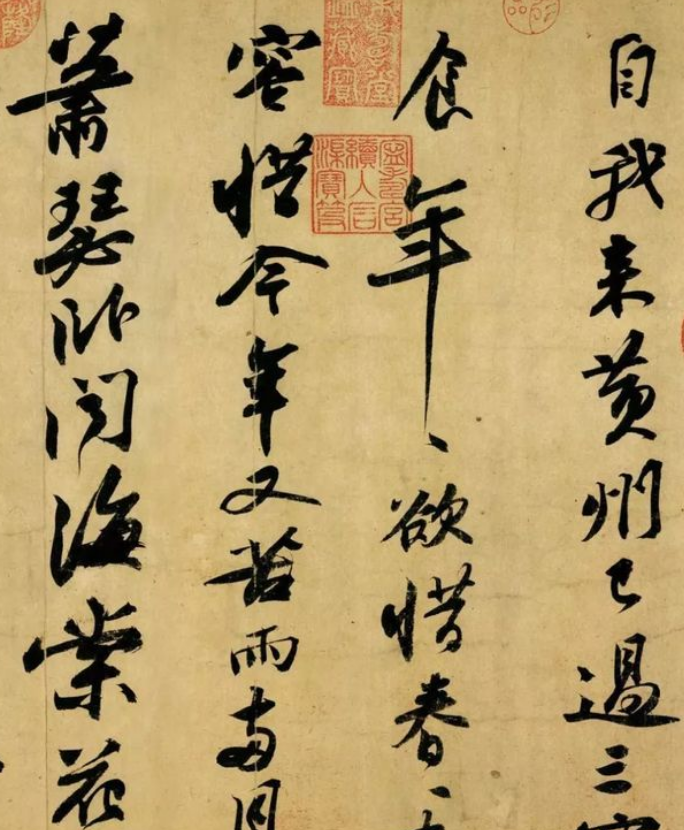 自我来黄州已過三
食年〻欲惜春〻
容惜今年又苦雨兩月
蕭瑟卧聞海棠花